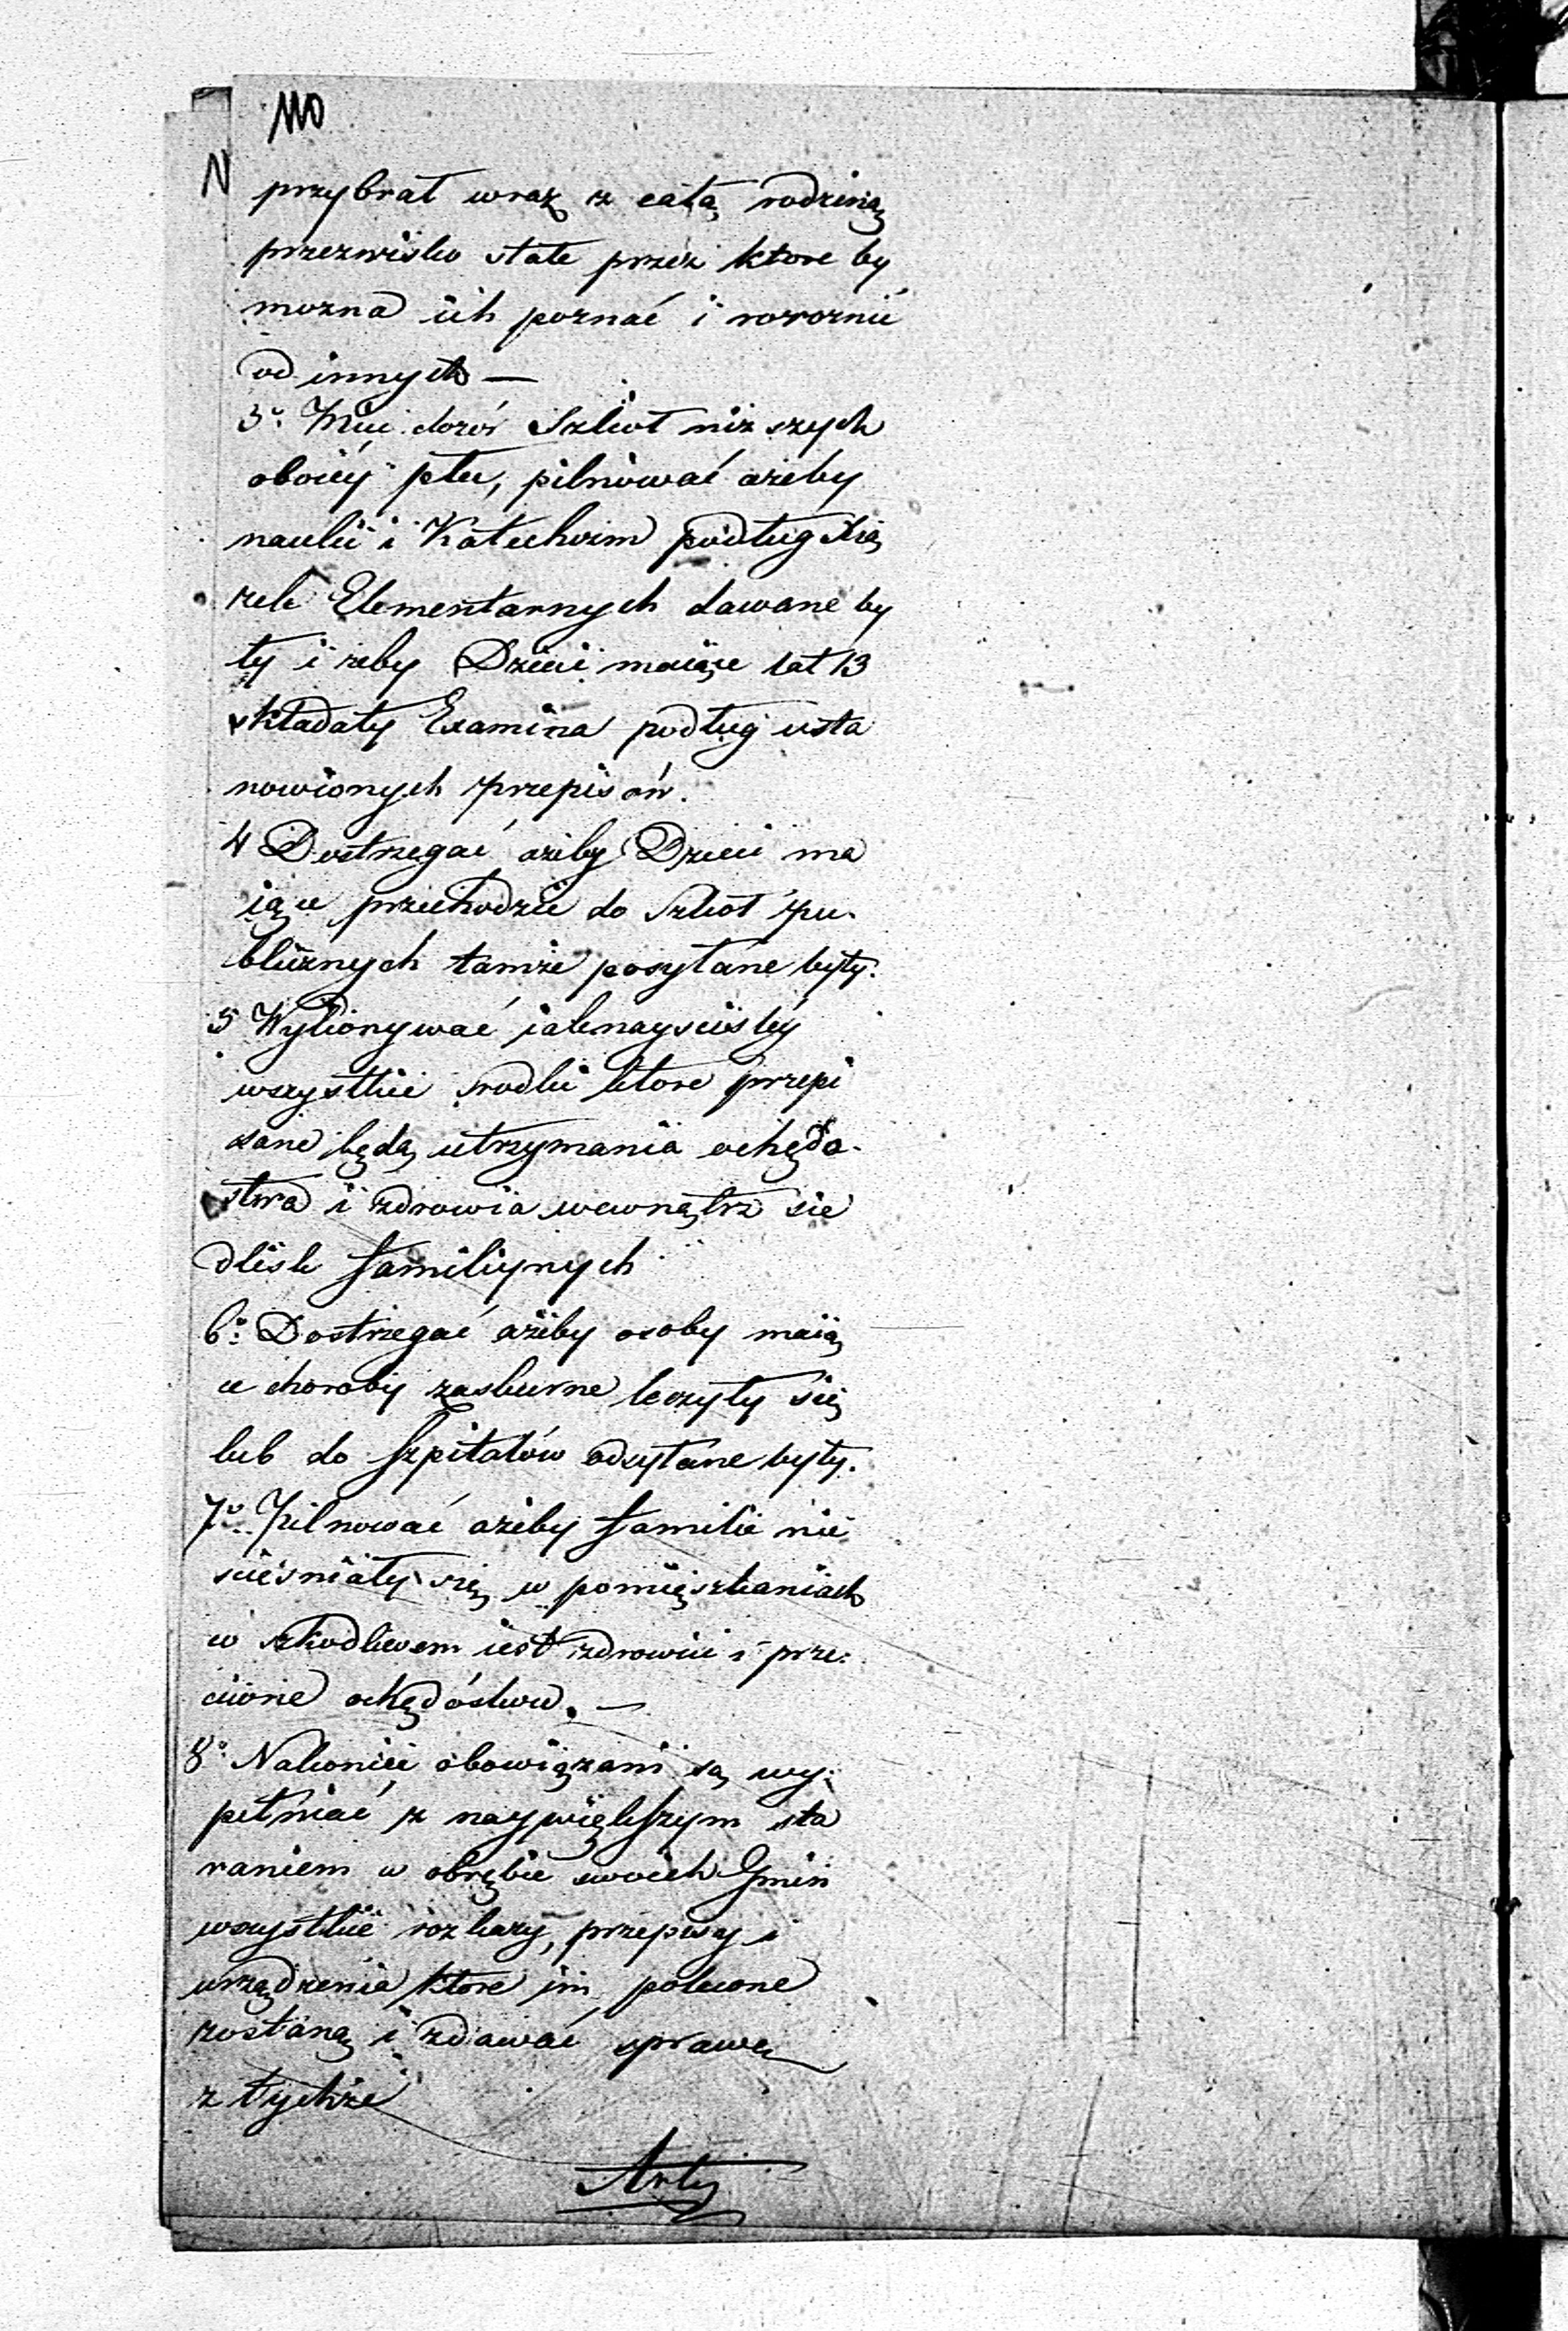 110
N
przybrał wraz z całą rodziną
przezwisko stałe przez ktore by
mozna ich poznać i rozroznić
od innych —
3º Mieć dozór Szkoł niższych
oboiéy płci, pilnować ażeby
nauki i Katechizm podług Xią
żek Elementarnych dawane by
ły i żeby Dzieci maiące lat 13
składały Examina podług usta
nowionych przepisów.
4 Dostrzegać ażeby Dzieci ma
iące przechodzić do Szkoł pu-
blicznych tamże posyłane były.
5 Wykonywać iaknayściśléy
wszystkie srodki ktore przepi
sane będą utrzymania ochędo-
stwa i zdrowia wewnątrz sie
dlisk familiynych
6º Dostrzegać ażeby osoby maią
ce choroby zaskurne leczyły się
lub do Szpitalów odsyłane były.
7º Pilnować ażeby familie nie
ścieśniały się w pomięszkaniach
co szkodliwem iest zdrowiu i prze-
ciwne ochędóstwu. —
8º Nakoniec obowiązani są wy-
pełniać z naywiększym sta
raniem w obrębie swoich Gmin
wszystkie rozkazy, przepisy i
urządzenia ktore im polecone
zostaną i zdawać sprawę
z tychże
Arty